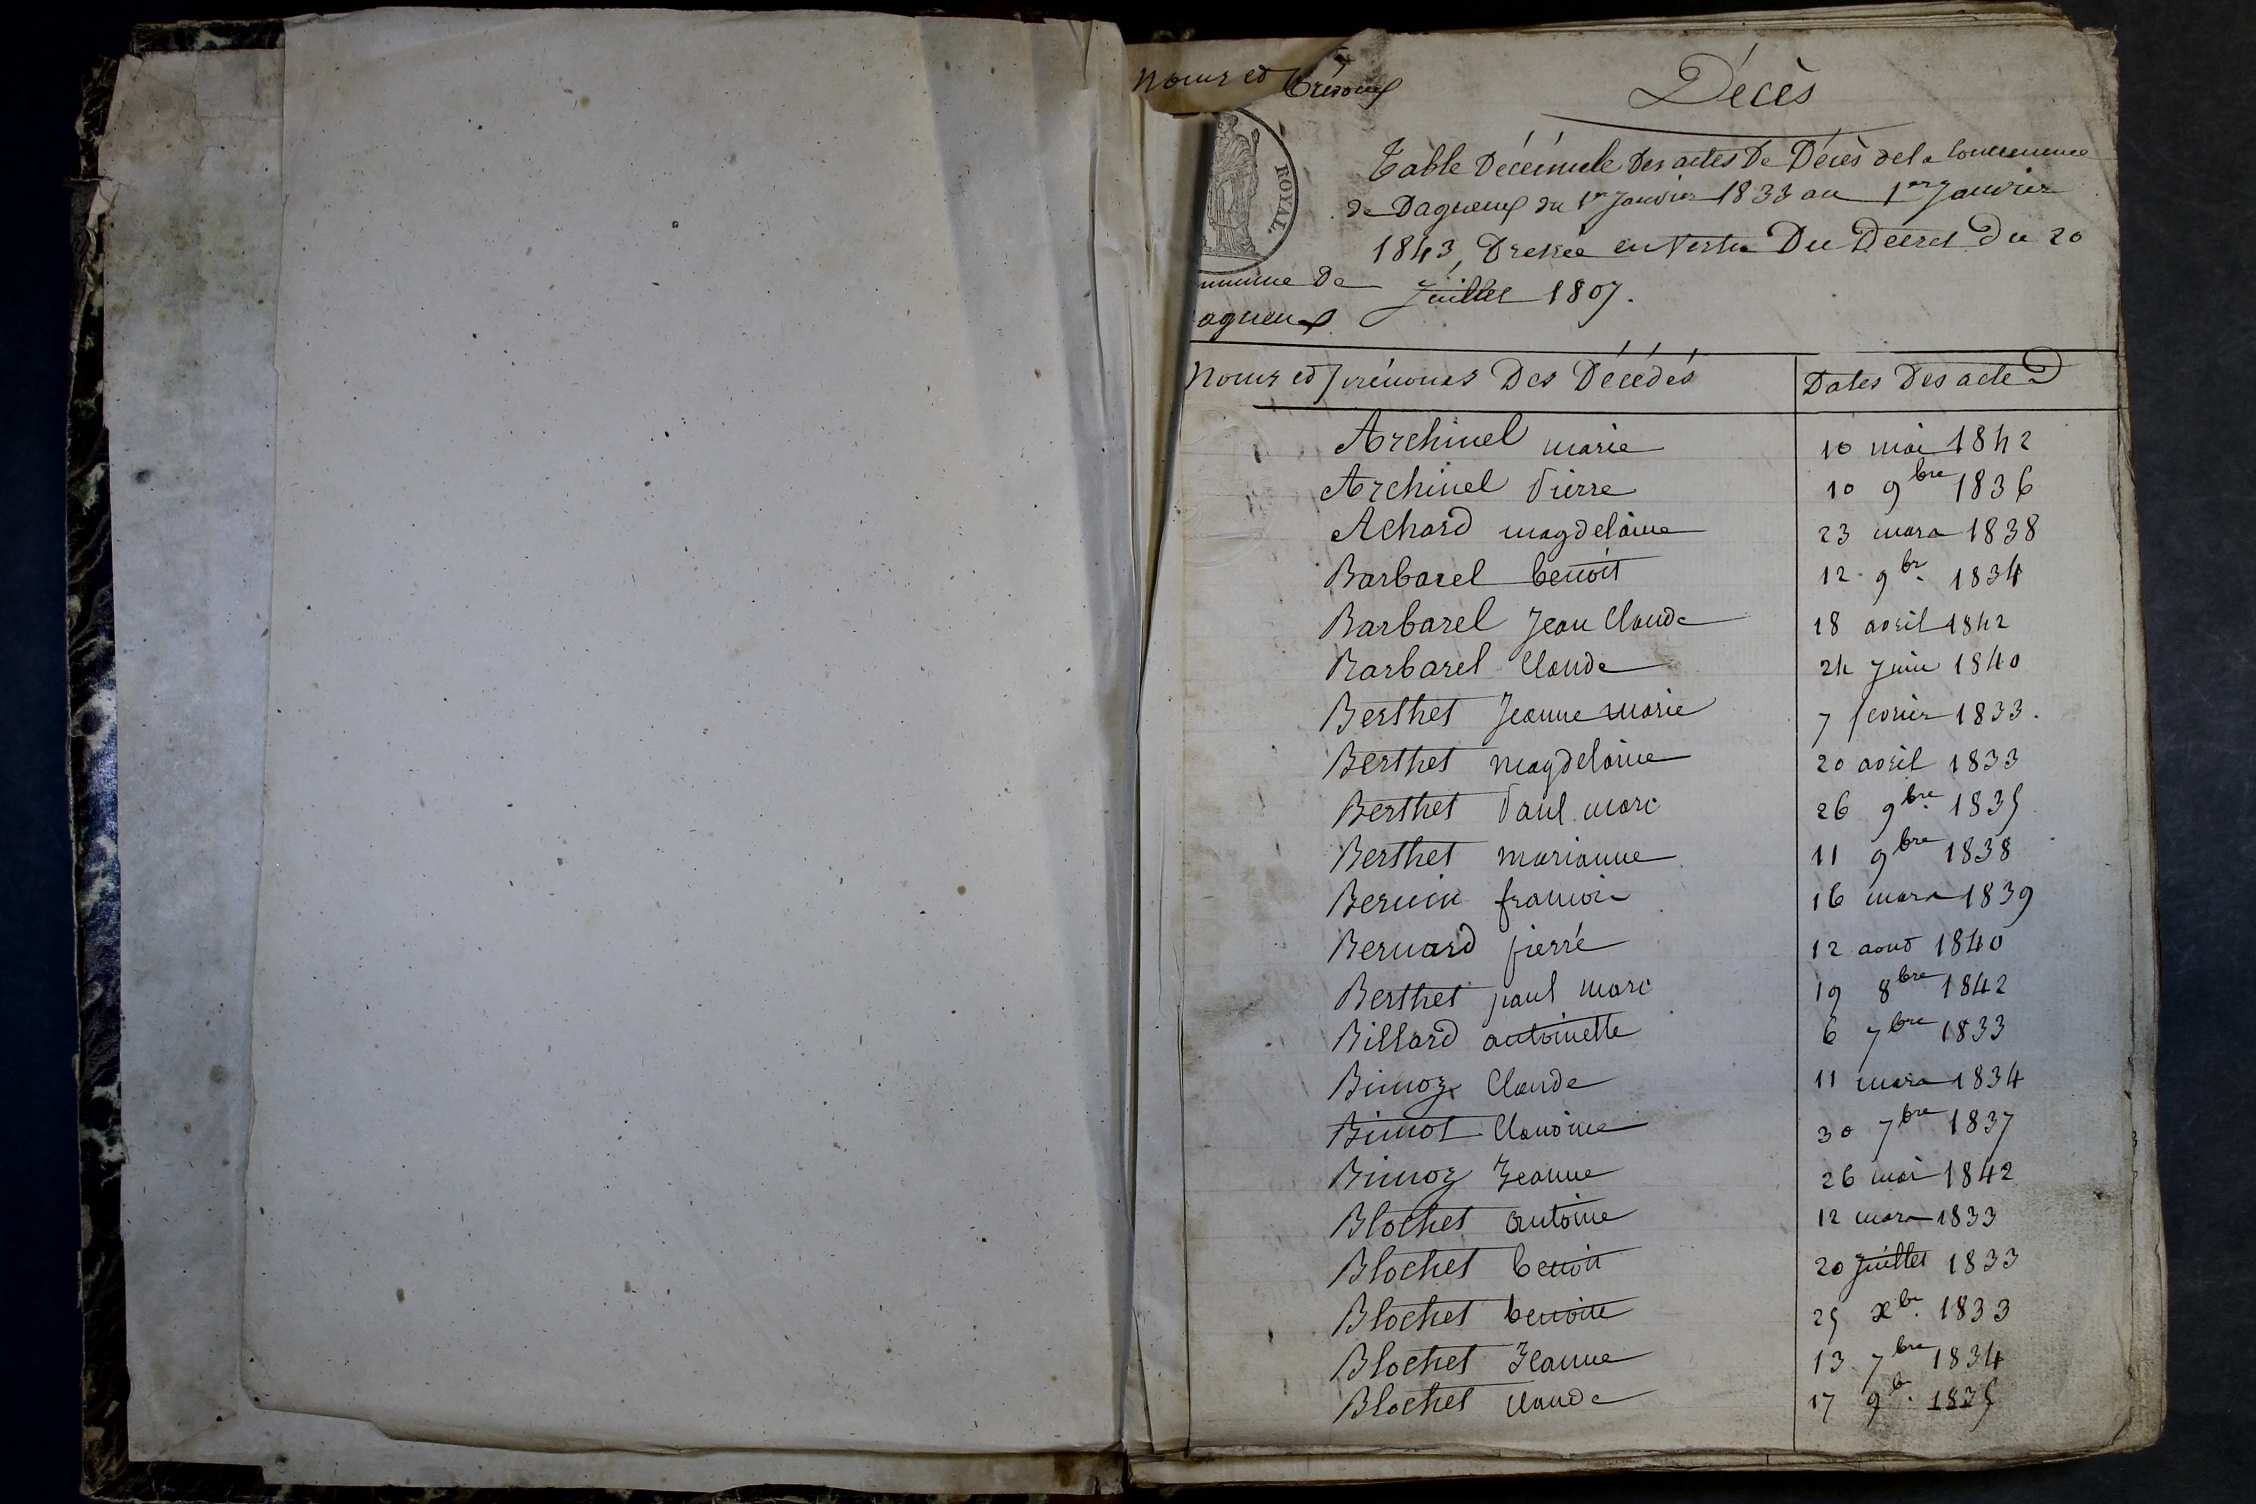 noms et
Trévoux
Décès
ROYAL.
Table Décennale Des actes De Décès de la Commune
de Dagneux du 1er Janvier 1833 au 1er Janvier
1843, Dressée en Vertu Du Décret Du 20
Juillet 1807.
mmune De
agneux
Noms et prénoms Des Décédés Dates Des actes
Archinel marie 10 mai 1842
Archinel Pierre 10 9bre 1836
Achard magdelaine 23 mars 1838
Barbarel benoit 12 9br. 1834
Barbarel Jean Claude 18 avril 1842
Barbarel Claude 24 Juin 1840
Berthet Jeanne marie 7 fevrier 1833.
Berthet magdelaine 20 avril 1833
Berthet Paul marc 26 9bre 1835
Berthet marianne 11 9bre 1838
Bernin francois 16 mars 1839
Bernard pierre 12 aout 1840
Berthet paul marc 19 8bre 1842
Billard antoinette 6 7bre 1833
Binoz Claude 11 mars 1834
Binot Claudine 30 7bre 1837
Binoz Jeanne 26 mai 1842
Blochet antoine 12 mars 1833
Blochet benoit 20 Juillet 1833
Blochet benoite 25 xbr. 1833
Blochet Jeanne 13 7bre 1834
Blochet Claude 17 9b. 1835